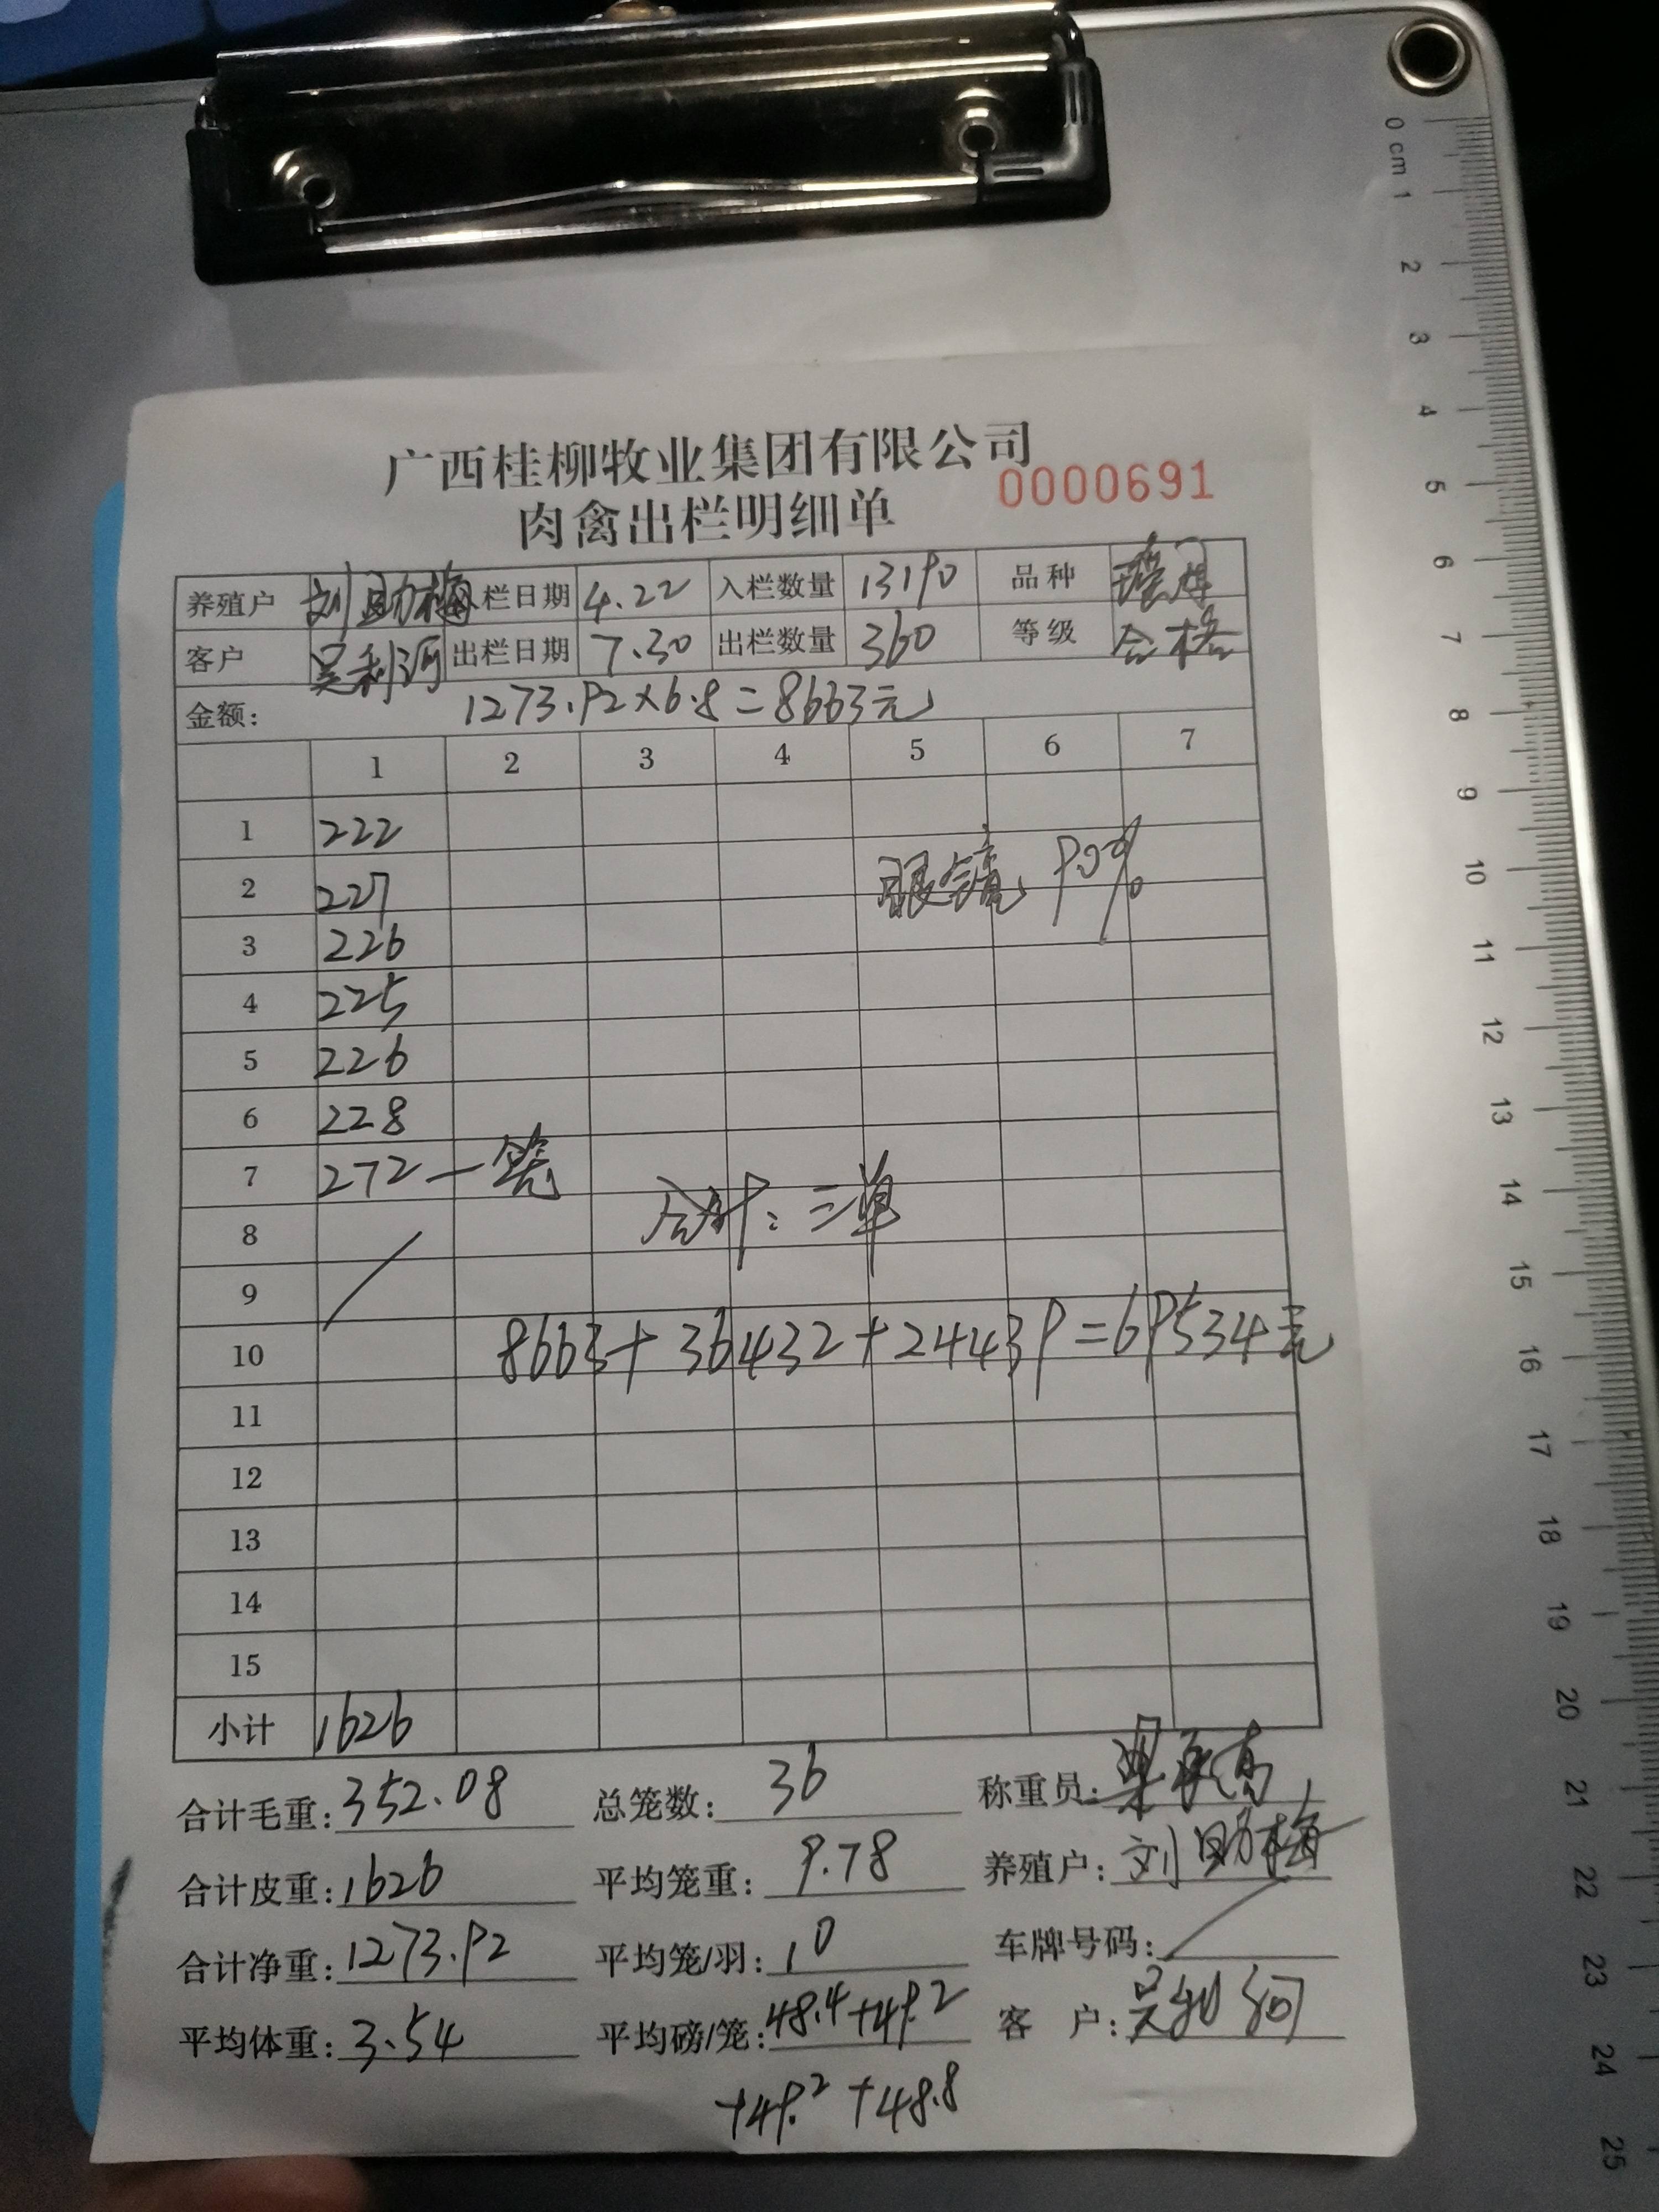 广西桂柳牧业集团有限公司
肉禽出栏明细单 0000691
养殖户 刘助梅 栏日期 4.22 入栏数量 13190 品种
客户 吴利河 出栏日期 7.30 出栏数量 360 等级 合格
金额: 1273.92×6.8=8663元
1 2 3 4 5 6 7
1 222
2 227 眼镜 90%
3 226
4 225
5 226
6 228
7 272 一笼
8 合计:三单
9
10 8663+36432+24439=69534元
11
12
13
14
15
小计 1626
合计毛重:352.08 总笼数:36 称重员:
合计皮重:1626 平均笼重:9.78 养殖户:刘助梅
合计净重:1273.92 平均笼/羽:10 车牌号码:
平均体重:3.54 平均磅/笼:48.4+49.2 客 户:吴利河
+49.2+48.8
0 cm 1 2 3 4 5 6 7 8 9 10 11 12 13 14 15 16 17 18 19 20 21 22 23 24 25